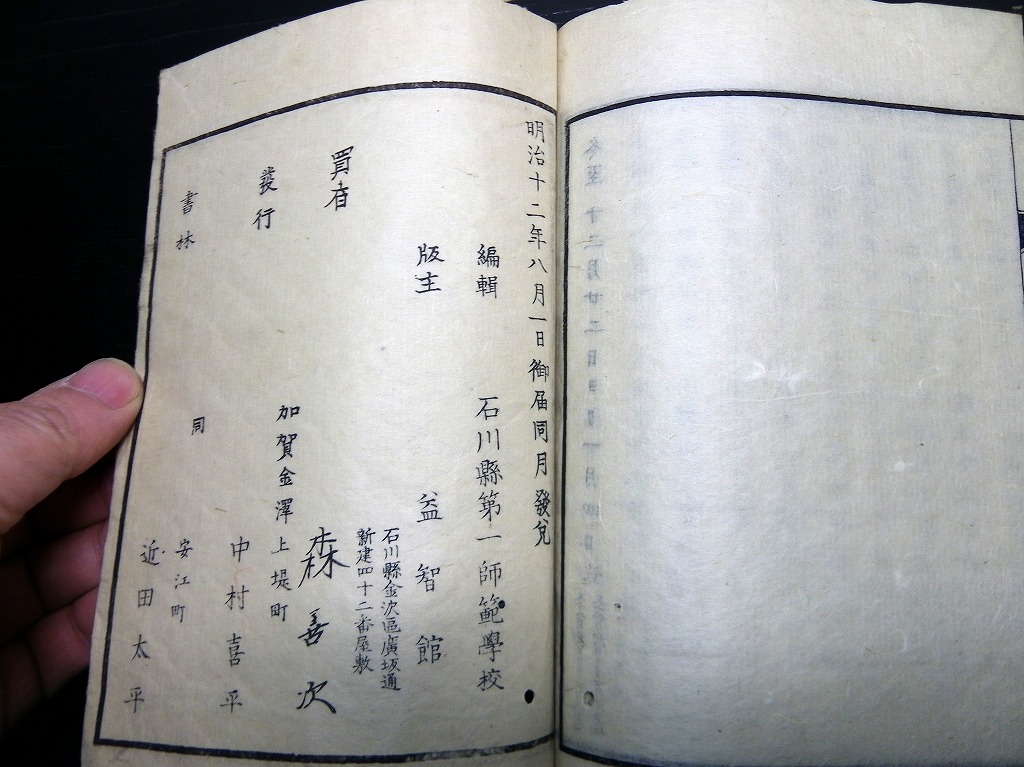 明治十二年八月一日御届同月發兌
編輯 石川縣第一師範學校
版主 益智館
石川縣金沢區廣坂通
新建四十二番屋敷
森善次
發行 加賀金澤上堤町
中村喜平
書林 同 安江町
近田太平